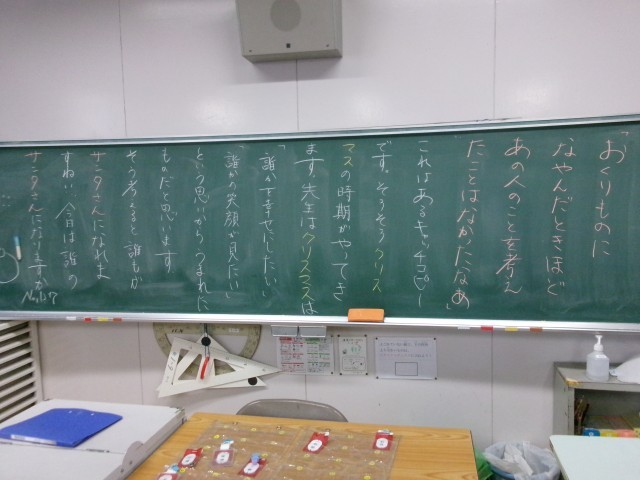 「おくりものに
なやんだときほど
あの人のことを考え
たことはなかったなあ」
これはあるキャッチコピー
です。そろそろクリス
マスの時期がやってき
ます。先生はクリスマスは
「誰かを幸せにしたい」
「誰かの笑顔が見たい」
という思いからうまれた
ものだと思います。
そう考えると誰もが
サンタさんになれま
すね。今日は誰の
サンタさんになりますか
No.167